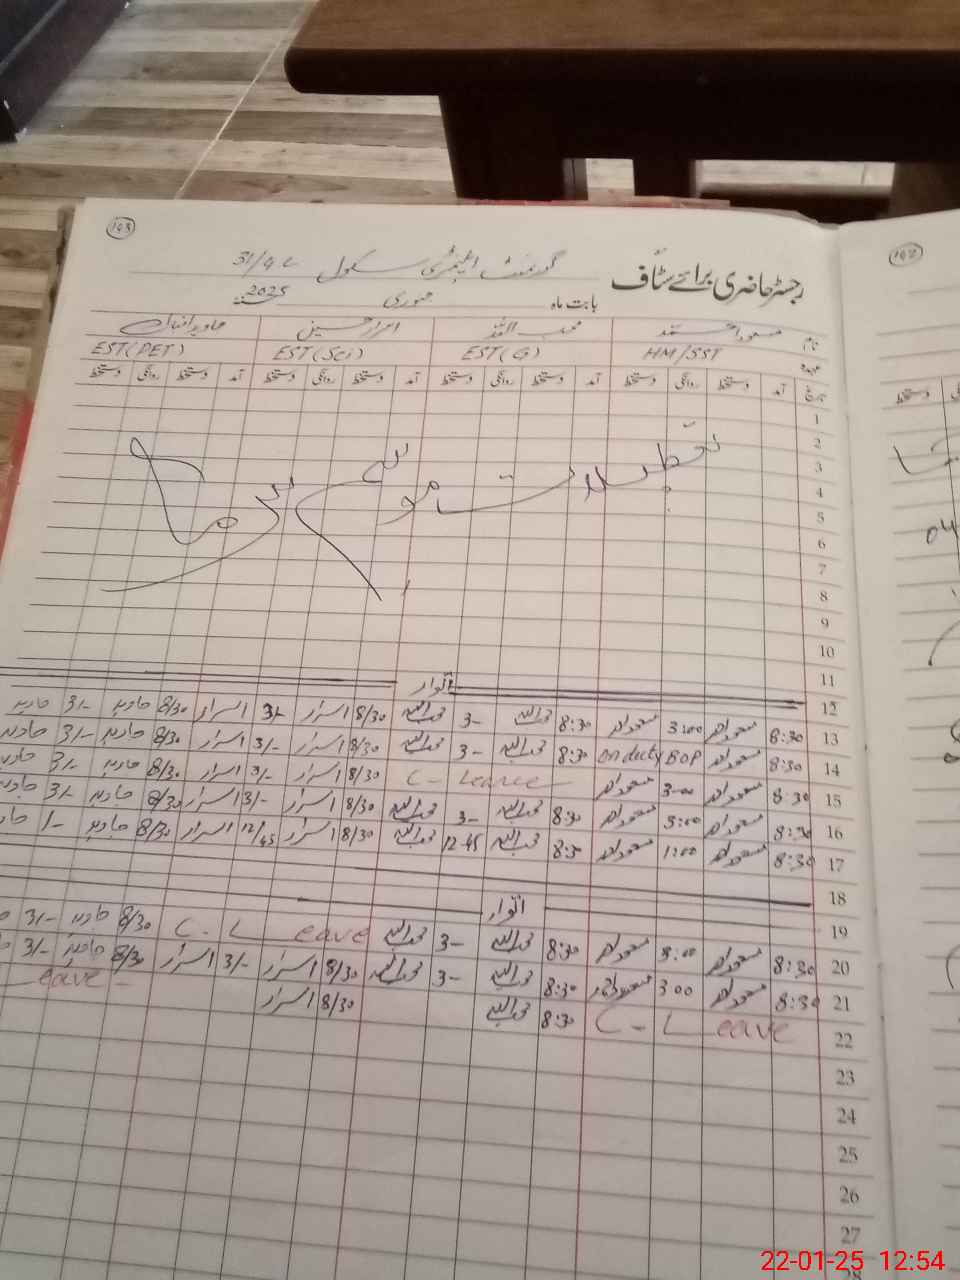 193
192
گورنمنٹ ایلیمنٹری سکول 31/9L
رجسٹر حاضری برائے سٹاف
بابت ماہ جنوری 2025
نام مسعود احمد محب اللہ اسرار حسین جاوید اقبال
عہدہ HM/SST EST(G) EST(Sci) EST(PET)
تاریخ آمد دستخط روانگی دستخط آمد دستخط روانگی دستخط آمد دستخط روانگی دستخط آمد دستخط روانگی دستخط
دستخط
1
2
تعطیلات موسم سرما
3
4
5
04
6
7
8
9
10
11
اتوار
12
13 8:30 مسعود احمد 3:00 مسعود احمد 8:30 محب اللہ 3- محب اللہ 8/30 اسرار 3/- اسرار 8/30 جاوید 3/- جاوید
14 8:30 مسعود احمد on duty BOP 8:30 محب اللہ 3- محب اللہ 8/30 اسرار 3/- اسرار 8/30 جاوید 3/- جاوید
15 8:30 مسعود احمد 3:00 مسعود احمد C - Leave 8/30 اسرار 3/- اسرار 8/30 جاوید 3/- جاوید
16 8:30 مسعود احمد 3:00 مسعود احمد 8:30 محب اللہ 3- محب اللہ 8/30 اسرار 3/- اسرار 8/30 جاوید 3/- جاوید
17 8:30 مسعود احمد 1:00 مسعود احمد 8:30 محب اللہ 12-45 محب اللہ 8/30 اسرار 12/45 اسرار 8/30 جاوید 1/-
18
اتوار
19
20 8:30 مسعود احمد 3:00 مسعود احمد 8:30 محب اللہ 3- محب اللہ C - Leave 8/30 جاوید 3/-
21 8:30 مسعود احمد 3:00 مسعود احمد 8:30 محب اللہ 3- محب اللہ 8/30 اسرار 3/- اسرار 8/30 جاوید 3/-
22 C - Leave 8:30 محب اللہ 8/30 اسرار eave -
23
24
25
26
27
28
22-01-25 12:54